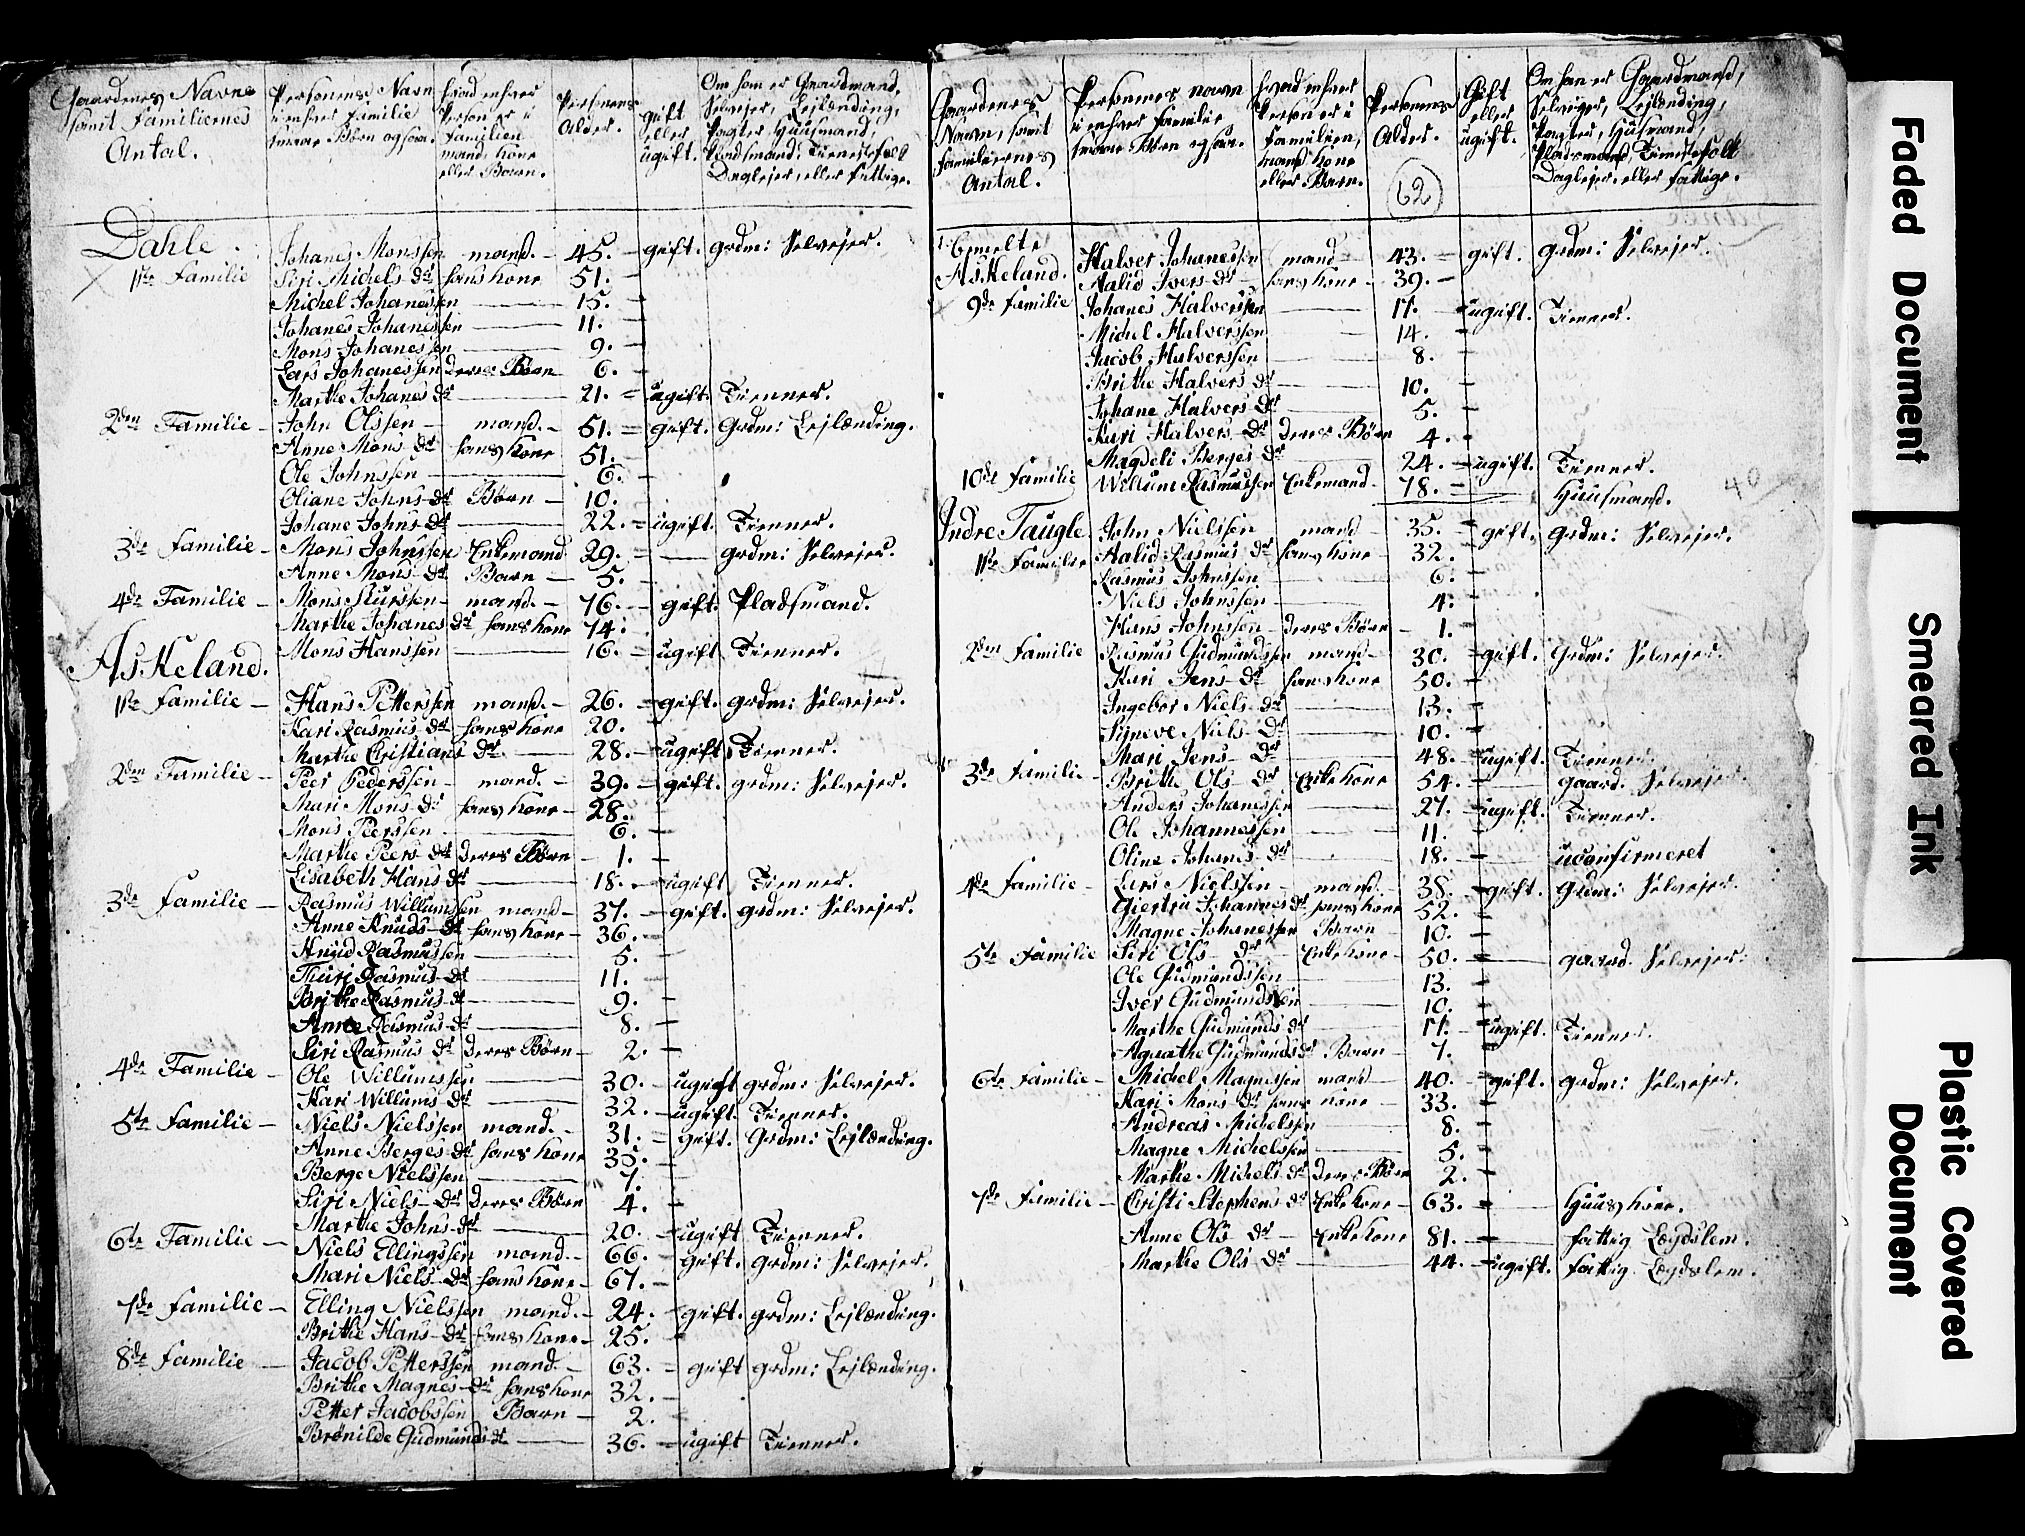 Gaardenes Navne samt Familiernes Antal.
Personens Navn i enhver familie smaae Børn ogsaa.
hvad enhver Person er i Familien mand, kone eller Barn.
Personens Alder.
gift eller ugift.
Om han er Gaardmand, Selvejer, Lejlænding, Pagter, Huusmand, Pladsmand, Tienestefolk Daglejer, eller Fattige.
Dahle.
1ste Familie Johanes Monssen mand. 45. gift. grdm: Selvejer.
Siri Michels Dr hans kone 51.
Michel Johanessen 15.
Johanes Johanessen 11.
Mons Johanessen 9.
Lars Johanessen deres Børn 6.
Marthe Johanes Dr 21. ugift. Tienner.
2den Familie John Olssen mand. 51. gift. Grdm: Lejlænding.
Anne Mons Dr hans kone 51.
Ole Johnssen 6.
Oliane Johns Dr Børn 10.
Johane Johns Dr 22. ugift. Tienner.
3de Familie Mons Johnssen Enkemand 29. grdm: Selvejer.
Anne Mons Dr Barn 5.
4de Familie Mons mand. 76. gift. Pladsmand.
Marthe Johanes Dr hans kone 74.
Mons Hanssen 16. ugift Tienner.
Askeland.
1ste Familie Hans Petterssen mand. 26. gift. grdm: Selvejer.
Kari Rasmus Dr hans kone 20.
Marthe Christians Dr. 28. ugift Tienner.
2den Familie Peer Pederssen mand. 39. gift. grdm: Selvejer.
Mari Mons Dr hans kone 28.
Mons Peerssen 6.
Marthe Peers Dr deres Børn 1.
Lisabeth Hans Dr 18. ugift Tienner.
3de Familie Rasmus Willumssen mand 37. gift. grdm: Selvejer.
Anne Knuds Dr hans kone 36.
Rasmussen 5.
Thuri Rasmus Dr 11.
Brithe Rasmus Dr 9.
Anne Rasmus Dr 8.
Siri Rasmus Dr deres Børn 2.
4de Familie Ole Willumssen 30. ugift grdm: Selvejer.
Kari Willums Dr 32. ugift. Tienner.
5te Familie Niels Nielssen mand. 31. gift. Grdm: Lejlænding.
Anne Berges Dr hans kone 35.
Berge Nielssen 7.
Siri Niels Dr deres Børn 4.
Marthe Johns Dr 20. ugift Tienner.
6te Familie Niels Ellingssen mand. 66. gift. grdm: Selvejer.
Mari Niels Dr hans kone 67.
7de Familie Elling Nielssen mand. 24. gift. grdm: Lejlænding.
Brithe Hans Dr hans kone 25.
8de Familie Jacob Petterssen mand. 63. gift grdm: Lejlænding.
Brithe Magnes Dr hans kone 32.
Petter Jacobssen Barn 2.
Brønilde Gudmunds Dr 36. ugift Tienner.
Gaardenes Navn, samt familiernes Antal.
Personenes navn i enhver familie smaae Børn ogsaa.
hvad enhver Person er i familien, mand kone eller Barn.
Personens Alder.
62
Gift eller ugift.
Om han er Gaardmand, Selvejer, Lejlænding, Pagter, Husmand, Pladsmand, Tienistefolk Daglejer, eller fattige.
Askeland.
Halver Johanessen mand 43. gift. grdm: Selvejer.
Aalid Ivers Dr hans kone 39.
9de familie Johanes Halverssen 17. ugift. Tienner.
Michel Halverssen 14.
Jacob Halverssen 8.
Brithe Halvers Dr 10.
Johane Halvers Dr 5.
Kari Halvers Dr deres Børn 4.
Magdeli Berges Dr 24. ugift. Tienner.
10de familie Willum Rasmussen Enkemand 78. Huusmand.
40
Indre Taugle
1ste Familie John Nielssen mand 35. gift. grdm: Selvejer.
Aalid Rasmus Dr hans kone 32.
Rasmus Johnssen 6.
Niels Johnssen 4.
Hans Johnssen deres Børn 1.
2den familie Rasmus Gudmundssen mand 30. gift. Grdm: Selvejer.
Kari Jens Dr hans kone 50.
Ingeber Niels Dr 13.
Synneve Niels Dr 10.
Mari Jens Dr 48. ugift. Tienner.
3de familie Brithe Ols Dr Enkekone 54. gaard. Selvejer.
Anders Johanessen 27. ugift. Tienner.
Ole Johannessen 11.
Oline Johans Dr 18. uconfirmeret
4de familie Lars Nielssen mand 38. gift. grdm: Selvejer.
Giertru Johannes Dr hans kone 52.
Magne Johanessen Barn 10.
5te familie Siri Ols Dr Enkekone 50. gaard. Selvejer.
Ole Gudmundssen 13.
Iver Gudmundssen 10.
Marthe Gudmunds Dr 17. ugift. Tienner.
Agnathe Gudmunds Dr Barn 7.
6te familie Michel Magnessen mand 40. gift. grdm: Selvejer.
Kari Mons Dr hans kone 33.
Andreas Michelssen 8.
Magne Michelssen 5.
Marthe Michels Dr deres Børn 2.
7de familie Christi Stephens Dr Enkekone 63. Huuskone.
Anne Ols Dr Enkekone 81. fattig Lægdslem.
Marthe Ols Dr 44. ugift. fattig Lægdslem.
Faded Document
Smeared Ink
Plastic Covered Document